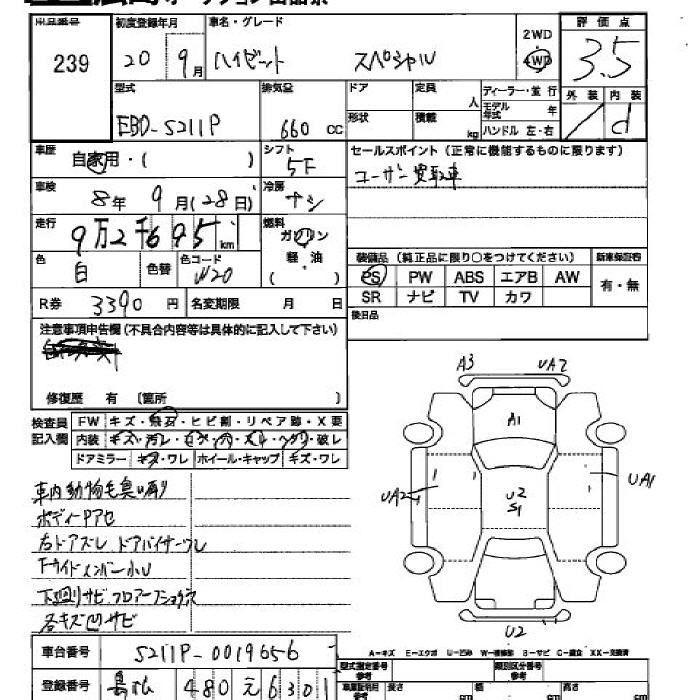 出品番号 初度登録年月 車名・グレード 2WD 評価点
239 20 9月 ハイゼット スペシャル 4WD 3.5
型式 排気量 ドア 定員 人 ディーラー・並行 外装 内装
EBD-S211P 660 CC 形状 積載 kg モデル年式 年 / d
ハンドル 左・右
車歴 自家用・( ) シフト 5F セールスポイント (正常に機能するものに限ります)
車検 8年 9月(28日) 冷房 ナシ ユーザー買取車
走行 9万2千695km 燃料 ガソリン
色 白 色替 色コード W20 軽・油 ( )
装備品 (純正品に限り○をつけてください) 新車保証書
PS PW ABS エアB AW 有・無
SR ナビ TV カワ
R券 3390円 名変期限 月 日
後日品
注意事項申告欄 (不具合内容等は具体的に記入して下さい)
修復歴 有 〔箇所 〕
検査員記入欄 FW キズ・飛石・ヒビ割・リペア跡・X要
内装 キズ・汚レ・
破レ
ドアミラー キズ・ワレ ホイール・キャップ キズ・ワレ
A3 UA2
A1
UA2 U2 S1 UA1
U2
車内動物毛臭い有り
ボディーPアセ
右ドアズレ ドアバイザーワレ
Fサイドメンバー小U
下廻りサビ フロアーフショクス
各キズ凹サビ
A-キズ E-エクボ U-凹み W-補修跡 S-サビ C-腐食 XX-交換済
車台番号 S211P-0019656
型式指定番号 参考 類別区分番号 参考
登録番号 島根 480 え 6301
長さ cm 幅 cm 高さ cm